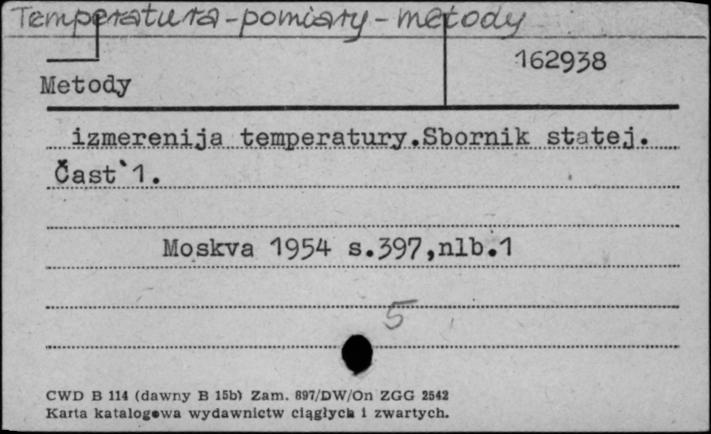 Temperatura-pomiary-metody
162938
Metody
izmerenija temperatury.Sbornik statej.
Čast`1.
Moskva 1954 s.397,nlb.1
5
CWD B 114 (dawny B 15b) Zam. 897/DW/On ZGG 2542
Karta katalogowa wydawnictw ciągłych i zwartych.